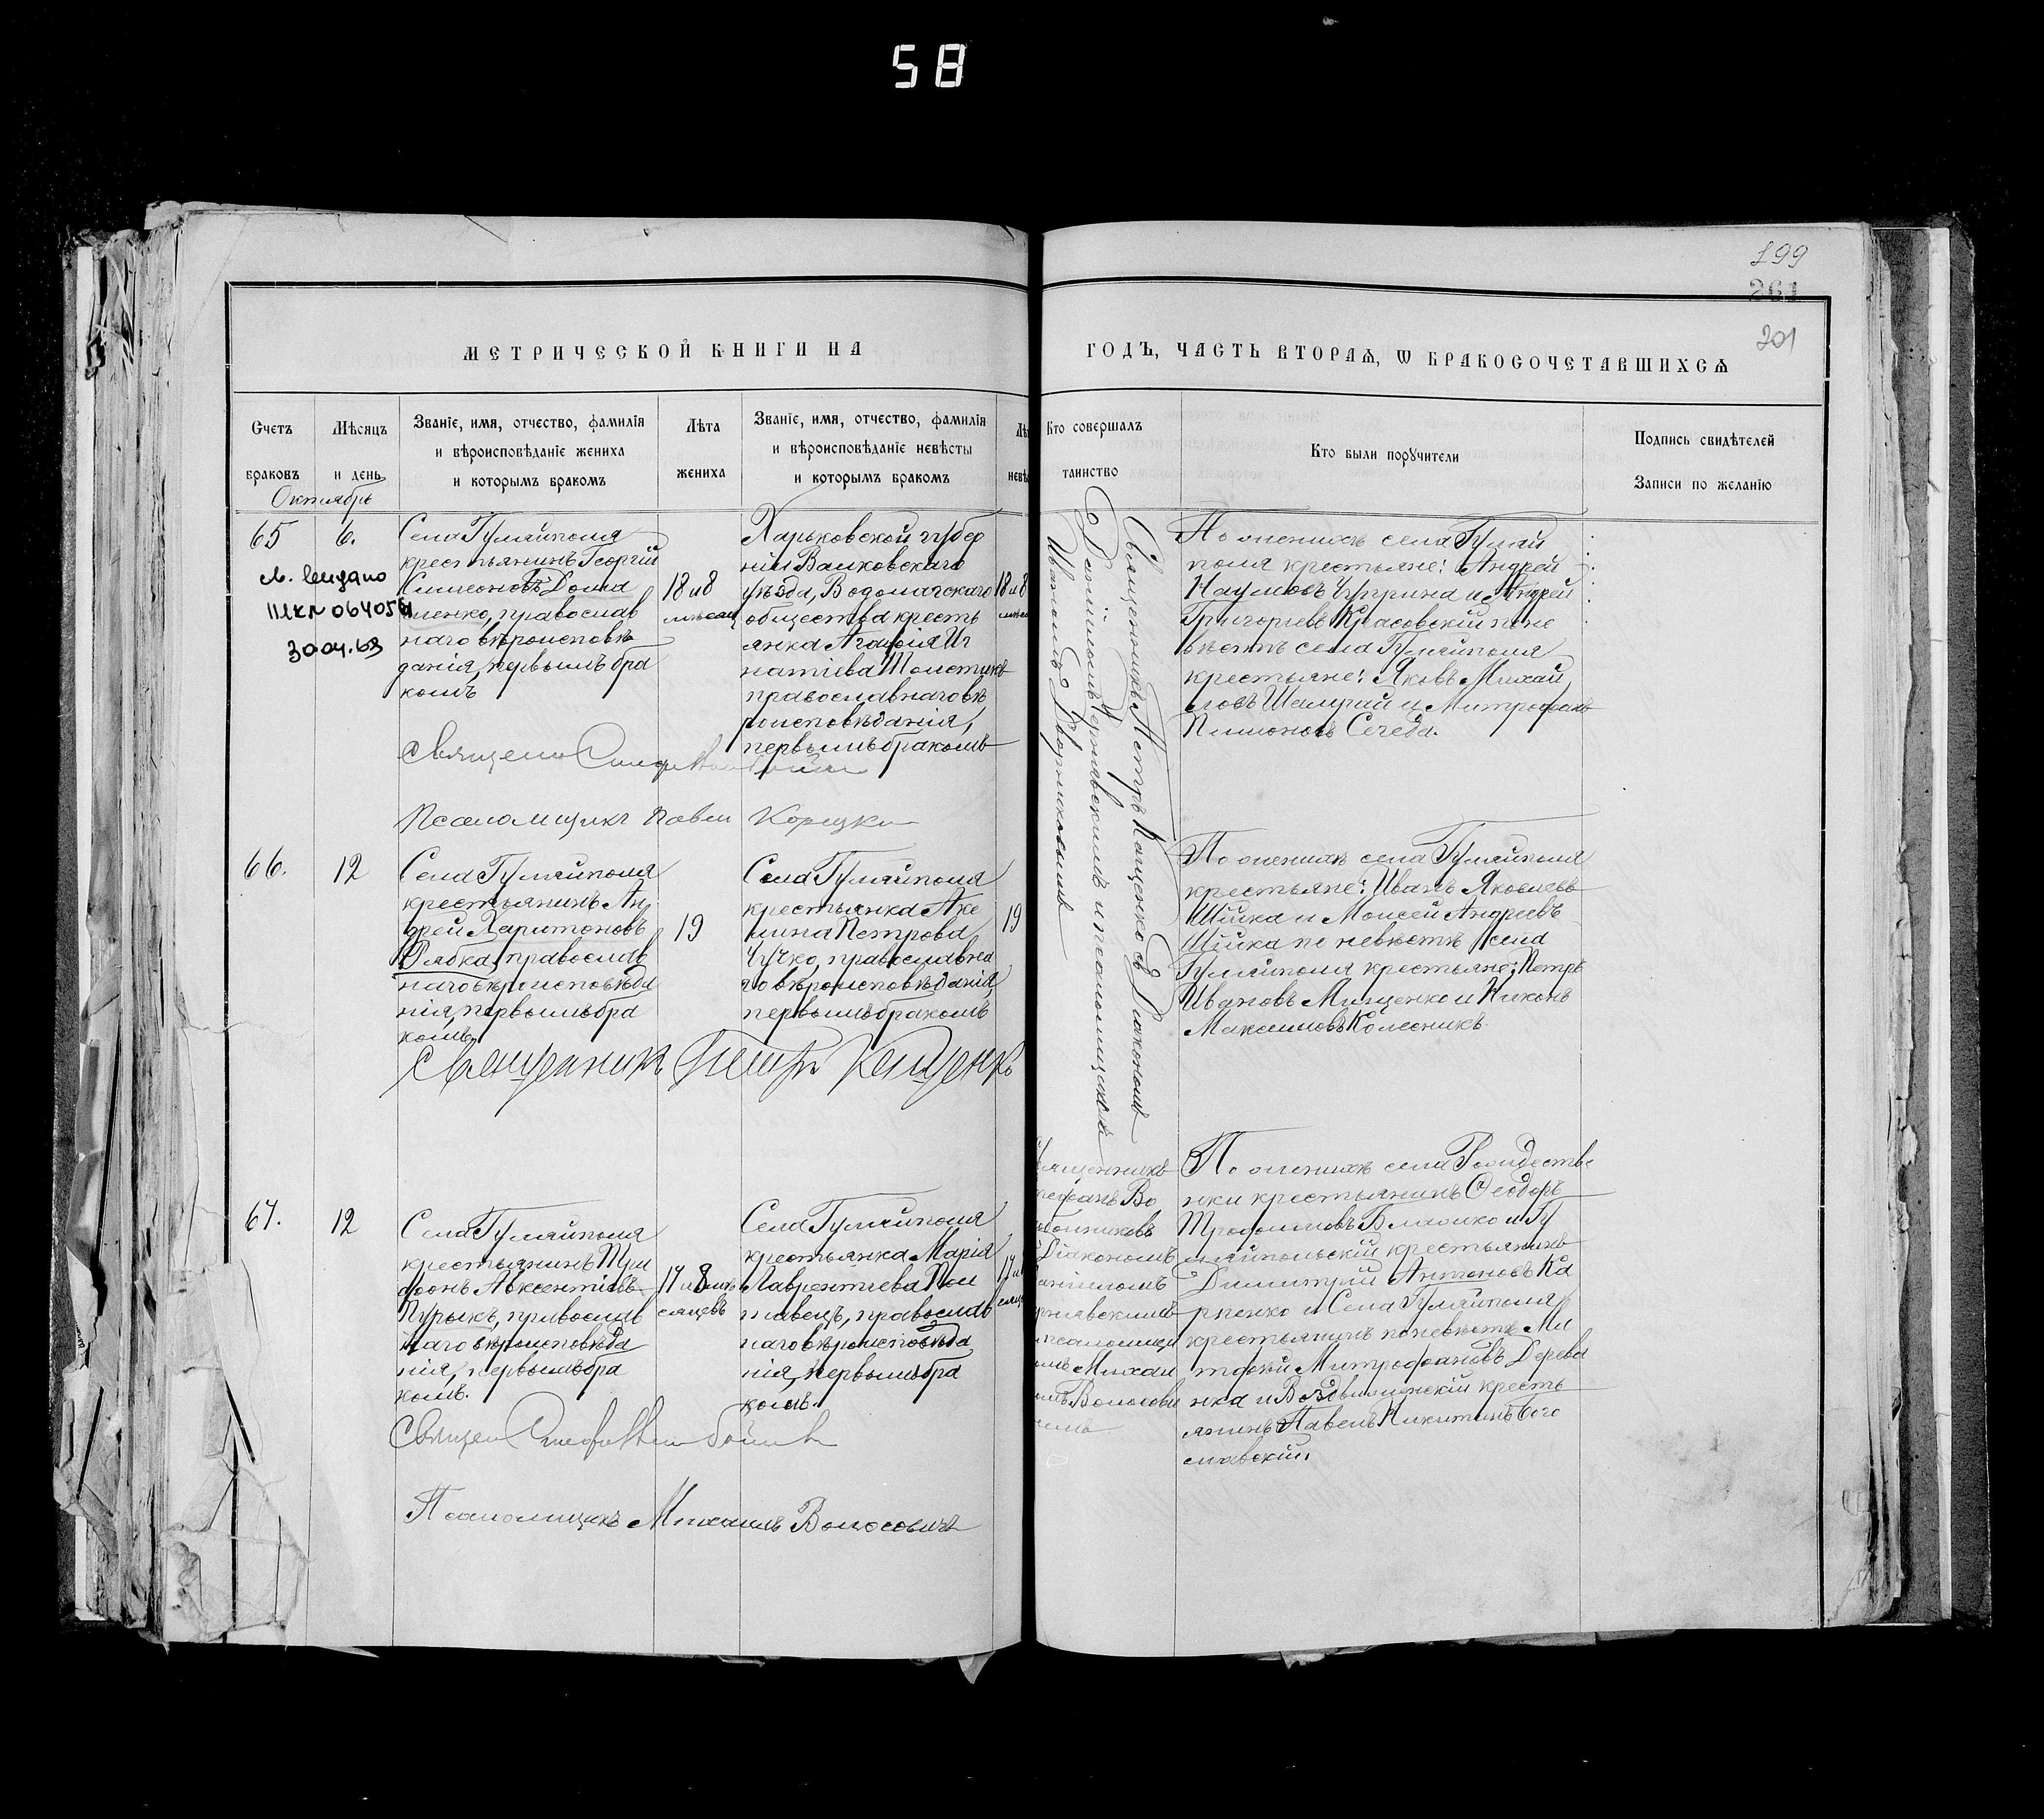 58
199
261
201
МЕТРИЧЕСКОЙ КНИГИ НА
ГОДЪ, ЧАСТЬ ВТОРАѦ, Ѡ БРАКОСОЧЕТАВШИХСѦ
Счетъ
браковъ
Мѣсяцъ
и день
Званіе, имя, отчество, фамилія
и вѣроисповѣданіе жениха
и которымъ бракомъ
Лѣта
жениха
Званіе, имя, отчество, фамилія
и вѣроисповѣданіе невѣсты
и которымъ бракомъ
Лѣ
невѣ
Кто совершалъ
таинство
Кто были порꙋчители
Подпись свидѣтелей
Записи по желанію
Октябрь
65
6.
064054
30.04.63
Села Гуляйполя
крестьянинъ Георгій
Симеоновъ Дома
шенко, православ
наго вѣроисповѣ
данія, первымъ бра
комъ
18 и 8
мѣсяц
Харьковской губер
ніи Валковскаго
уѣзда, Водолагскаго
общества кресть
янка Агафія Иг
натіева Толстикъ
православнаго вѣ
роисповѣданія,
первымъ бракомъ
18 и 8
Священникъ Петръ Кащенко съ Діакономъ
Даніиломъ Чернявскимъ и псаломщикъ
Иваномъ Дворниковымъ
По женихѣ села Гуляй
поля крестьяне: Андрей
Наумовъ Чуприна и Андрей
Григорьевъ Красовскій по не
вѣстѣ села Гуляйполя
крестьяне: Яковъ Михай
ловъ Шамрай и Митрофанъ
Пимоновъ Середа.
Псаломщикъ Павелъ Корецки
66.
12
Села Гуляйполя
крестьянинъ Ан
дрей Харитоновъ
Рябка, православ
наго вѣроисповѣда
нія, первымъ бра
комъ.
19
Села Гуляйполя
крестьянка Аке
лина Петрова
Чучко, православна
го вѣроисповѣданія,
первымъ бракомъ
19
По женихѣ села Гуляйполя
крестьяне: Иванъ Яковлевъ
Шійка и Моисей Андреевъ
Шійка по невѣстѣ села
Гуляйполя крестьяне: Петръ
Ивановъ Мищенко и Никонъ
Максимовъ Колесникъ.
Священникъ Петръ Кащенко
67.
12
Села Гуляйполя
крестьянинъ Три
фонъ Авксентіевъ
Пурыкъ, православ
наго вѣроисповѣда
нія, первымъ бра
комъ.
17 и 8 мѣ
сяцевъ
Села Гуляйполя
крестьянка Марія
Лаврентіева Пол
тавецъ, православ
наго вѣроисповѣда
нія, первымъ бра
комъ.
17 и
Священникъ
Діакономъ
Даніиломъ
Чернявскимъ
псаломщи
Михаи
Волосови
чемъ
По женихѣ села Рождестве
нки крестьянинъ Ѳеодоръ
Трофимовъ Власко и Гу
ляйпольскій крестьянинъ
Димитрій Антоновъ Ка
рпенко и Села Гуляйполя
крестьянинъ по невѣстѣ Ми
трофанъ Митрофановъ Дерева
нка и Воздвиженскій кресть
янинъ Павелъ Никитинъ Бого
славскій.
Псаломщикъ Михаилъ Волосовичъ